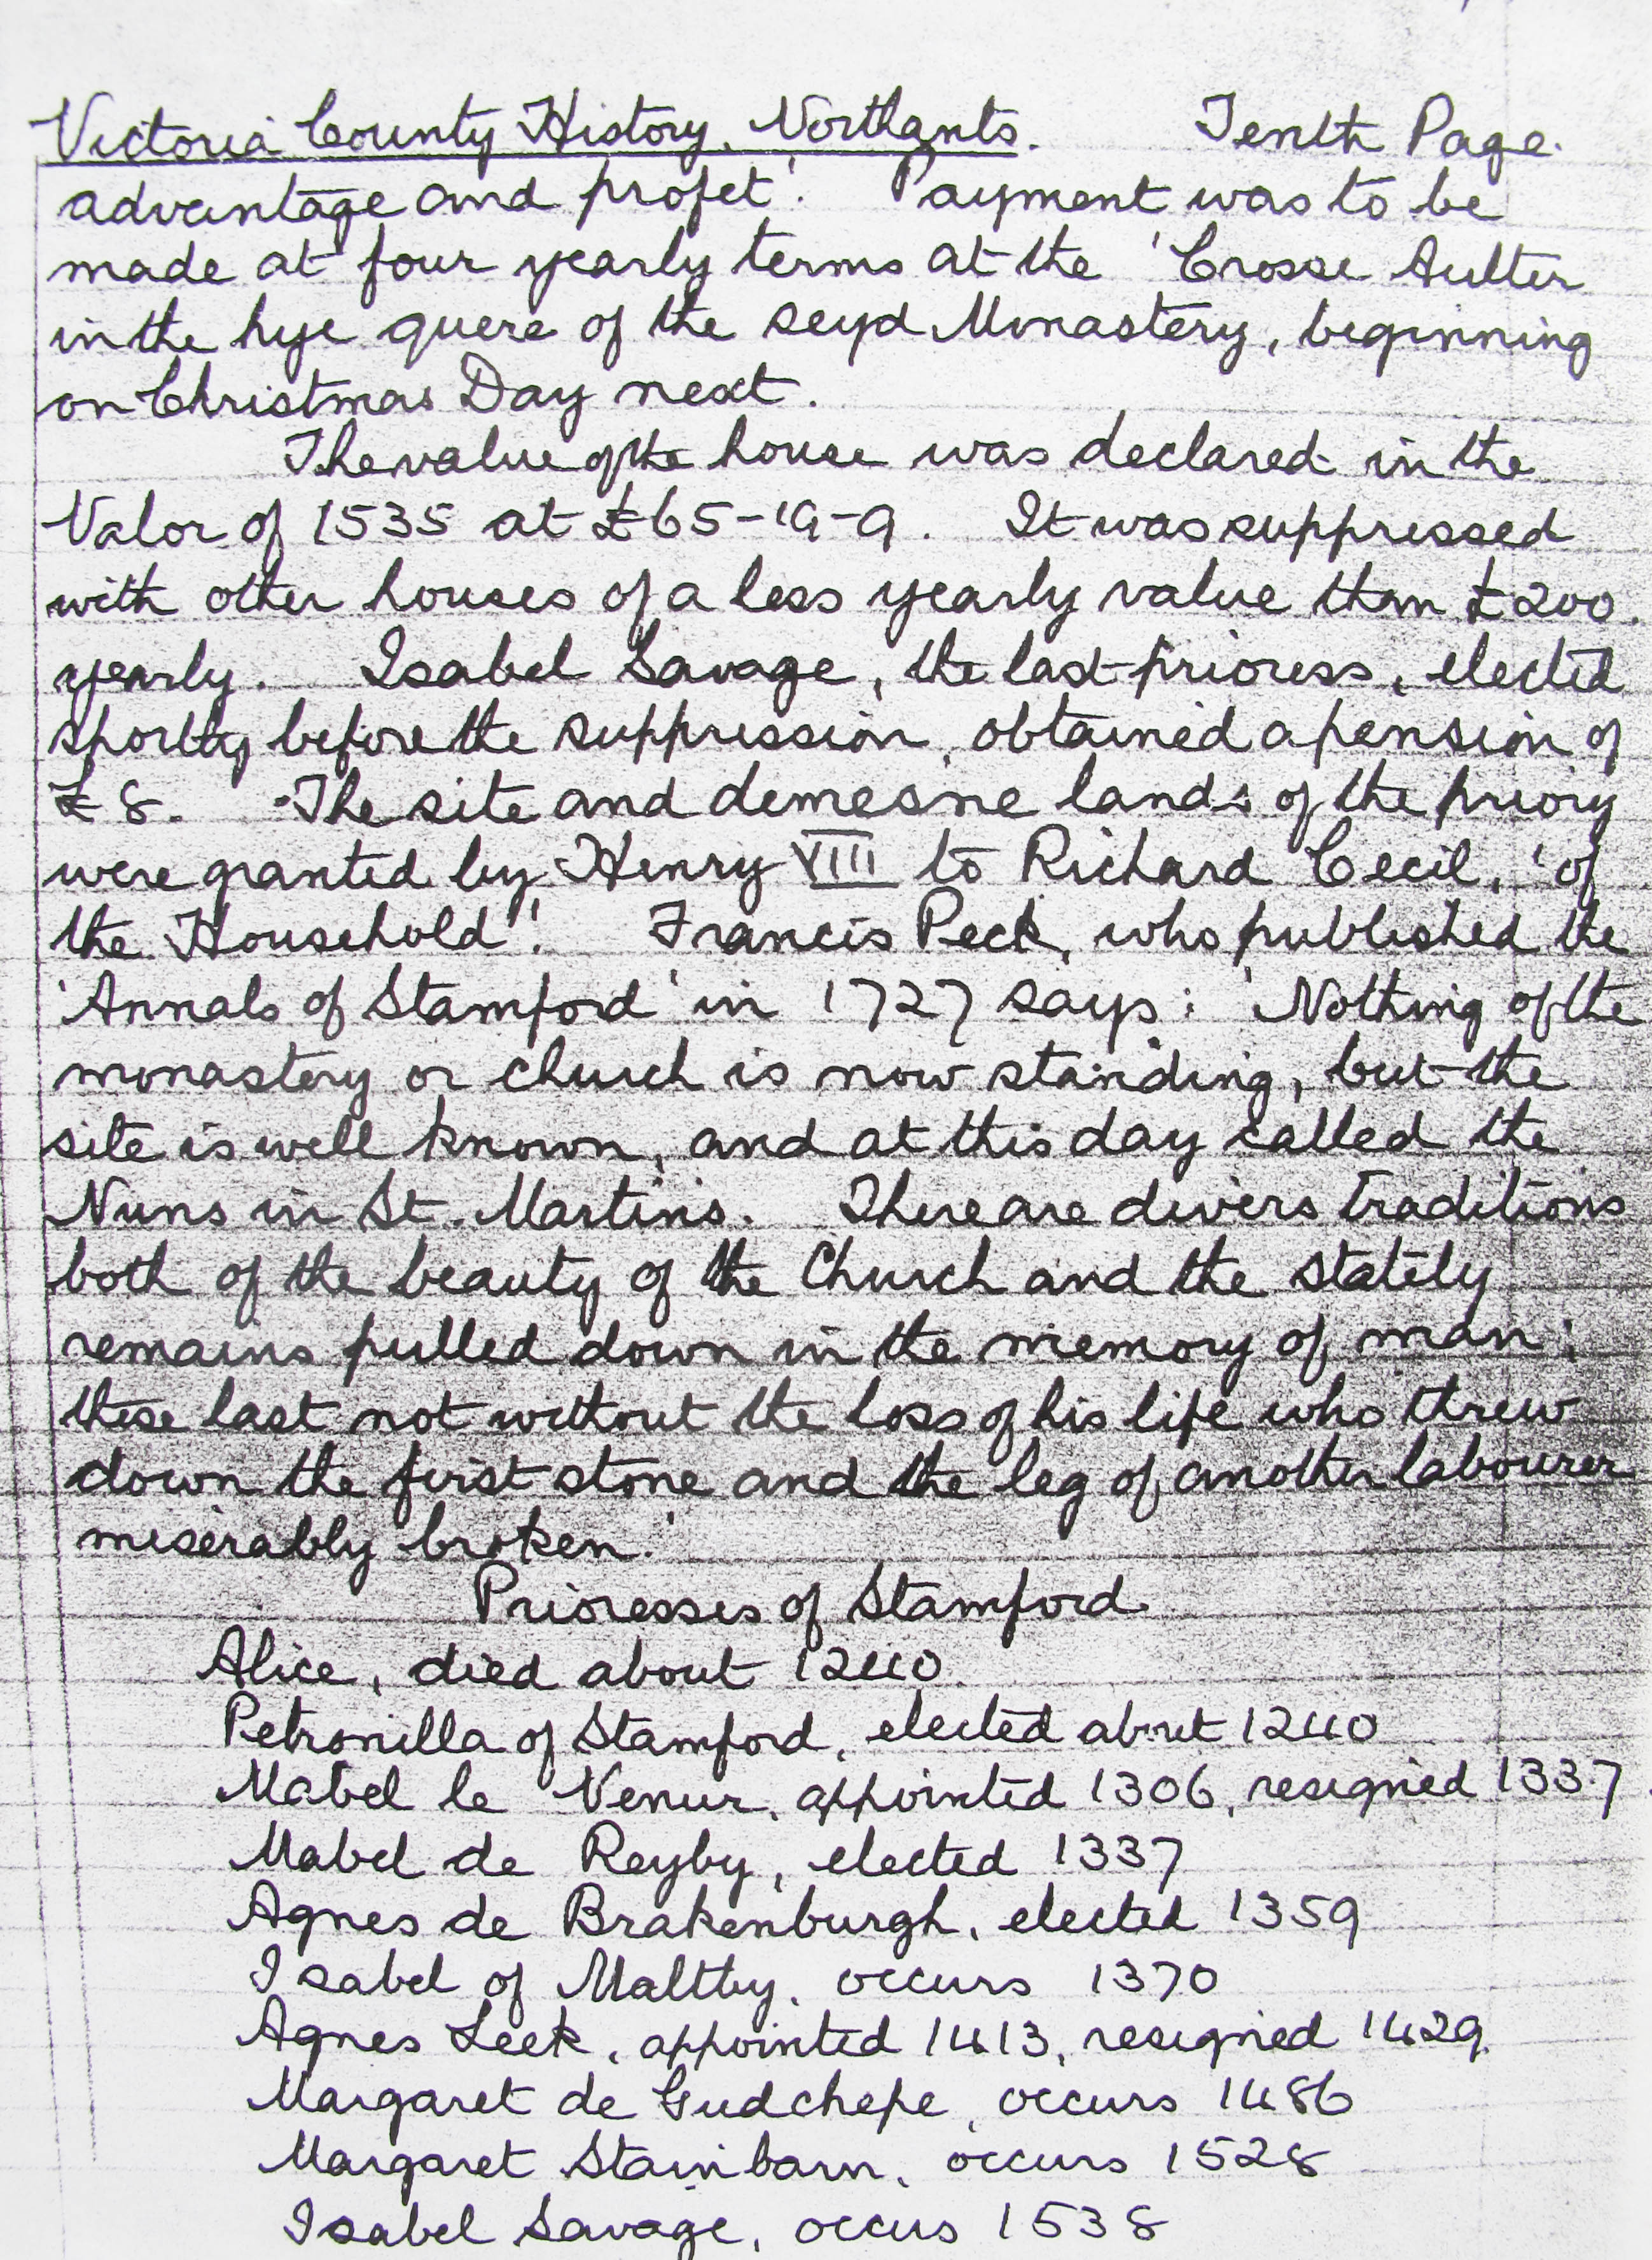 Victoria County History, Northants. Tenth Page.
advantage and profet'. Payment was to be
made at four yearly terms at the 'Crosse Aulter
in the hye quere of the seyd Monastery, beginning
on Christmas Day next.
The value of the house was declared in the
Valor of 1535 at £65-19-9. It was suppressed
with other houses of a less yearly value than £200.
yearly. Isabel Savage, the last prioress, elected
shortly before the suppression, obtained a pension of
£8. The site and demesne lands of the priory
were granted by Henry VIII to Richard Cecil, 'of
the Household'. Francis Peck, who published the
'Annals of Stamford' in 1727 says: 'Nothing of the
monastery or church is now standing, but the
site is well known, and at this day called the
Nuns in St. Martins. There are divers traditions
both of the beauty of the Church and the stately
remains pulled down in the memory of man;
these last not without the loss of his life who threw
down the first stone and the leg of another labourer
miserably broken.'
Prioresses of Stamford
Alice, died about 1240.
Petronilla of Stamford, elected about 1240
Mabel le Venur, appointed 1306, resigned 1337
Mabel de Reyby, elected 1337
Agnes de Brakenburgh, elected 1359
Isabel of Maltby, occurs 1370
Agnes Leek, appointed 1413, resigned 1429
Margaret de Gudchepe, occurs 1486
Margaret Stainbarn, occurs 1528
Isabel Savage, occus 1538